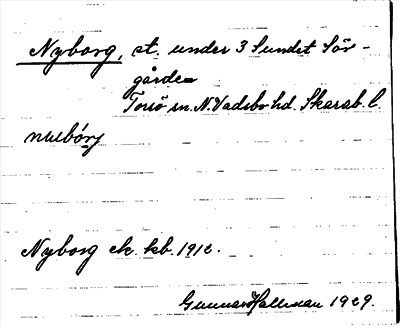 Nyborg, st. under 3 Sundet Sör-
gården
Torsö sn. N. Vadsbo hd. Skarab. l.
Nyborg ek. kb. 1912.
Gunnar Hallman 1929.